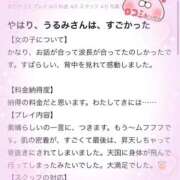 やはり、うるみさんは、すごかった
【女の子について】
かなり、お話が合って波長が合ってたのしかったで
す。すばらしい、背中を見れて感動しました。
【料金納得度】
納得の料金だと思います。わたしてきには・・・・
【プレイ内容】
素晴らしいの一言に、つきます。もう～ムフフフで
、肌の密着が、すごくて最後は、昇天しちゃって
気抜きしていまいました。天国に身体が飛んで
行ってしまったみたいでした。大満足でした。
【スタッフの対応】